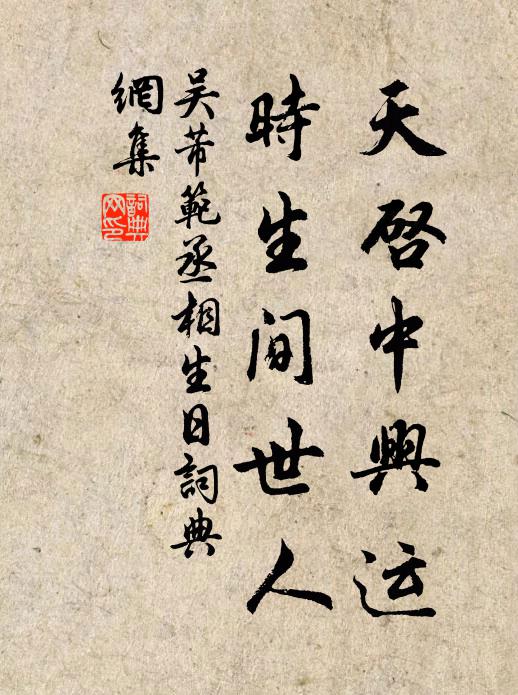 天啓中興运
時生間世人
吴芾範丞相生日詞典
網集
詞典
网印